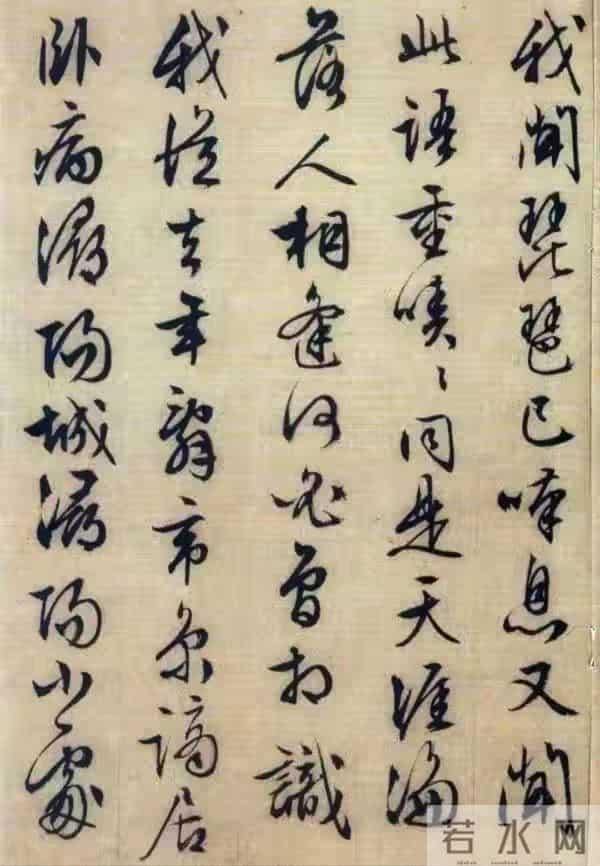 我聞琵琶已嘆息又聞
此語重唧〻同是天涯淪
落人相逢何必曾相識
我從去年辭帝京謫居
臥病潯陽城潯陽小處
若水网